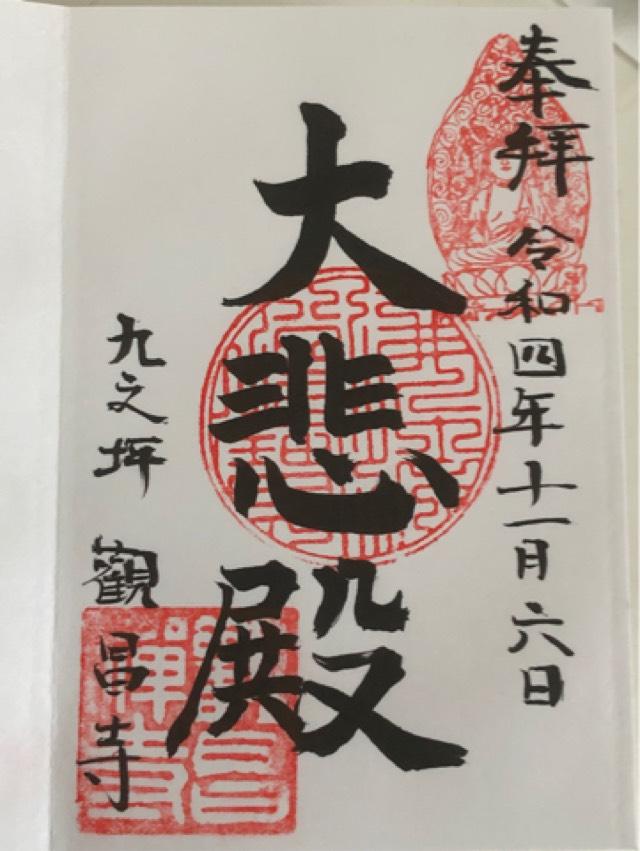 奉拝 令和四年十一月六日
大悲殿
九文坪 觀昌寺